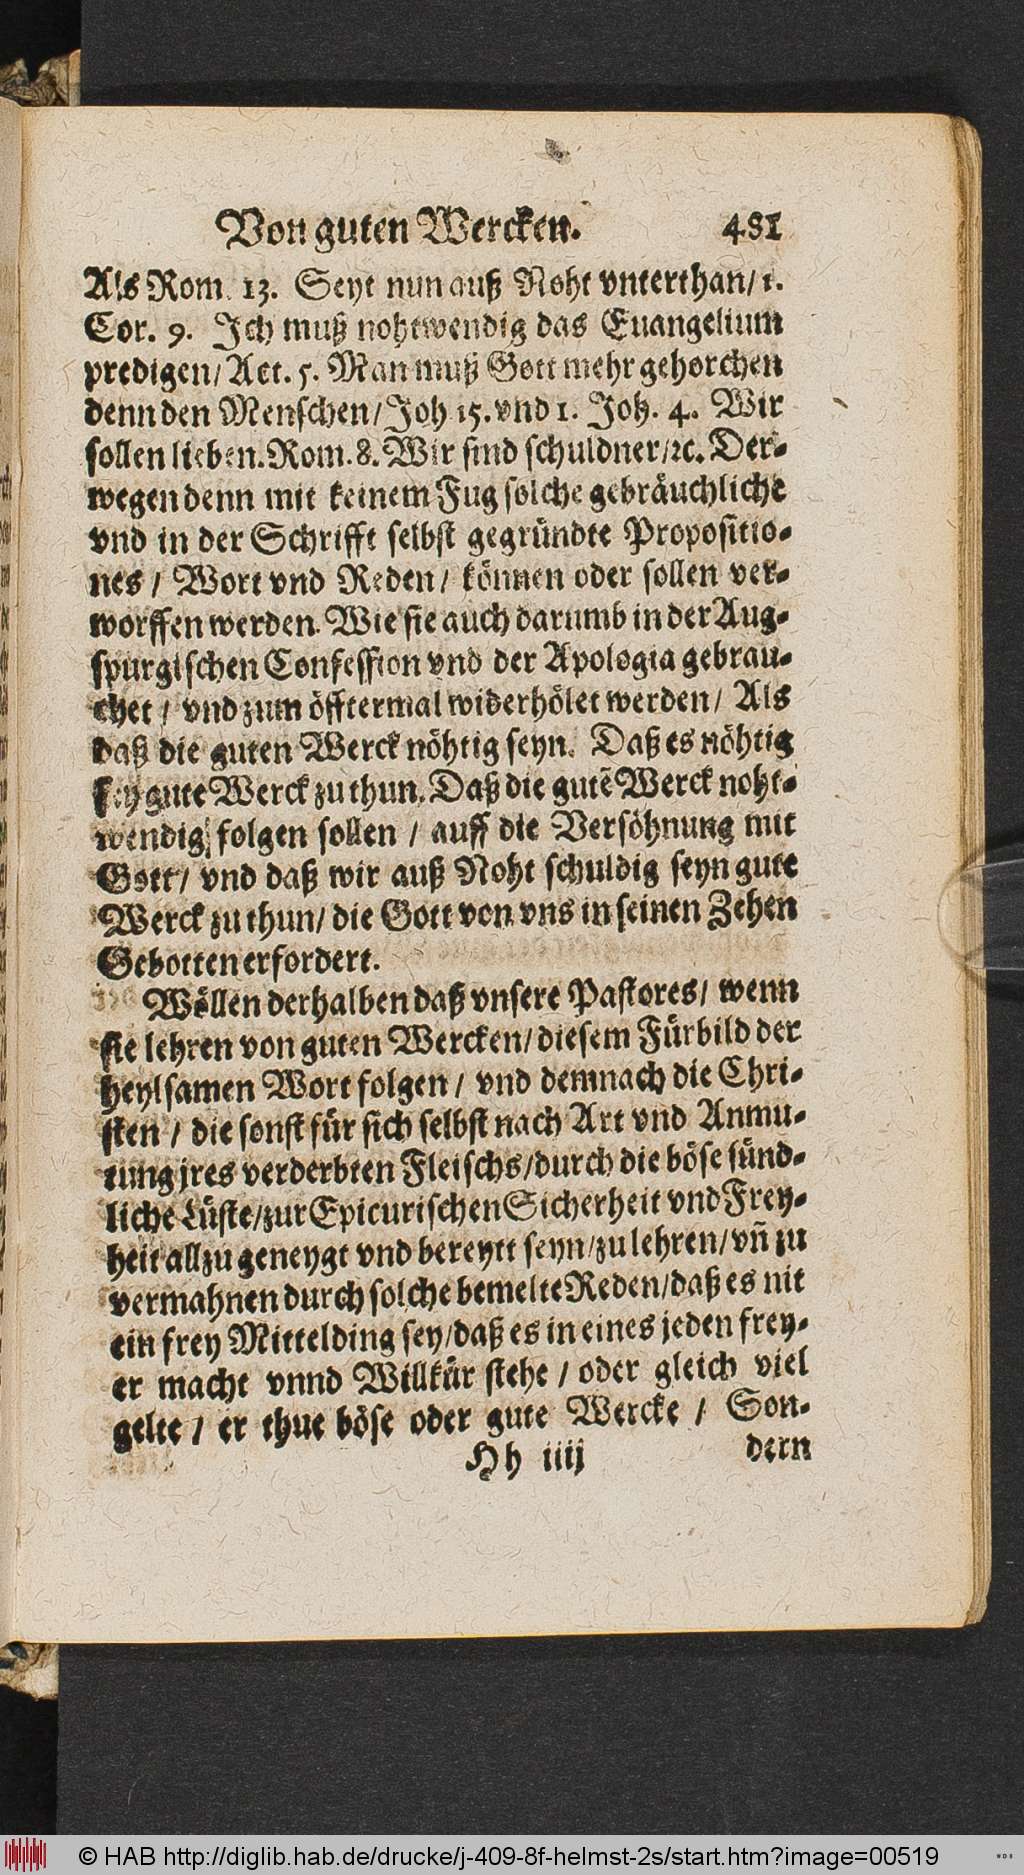 Von guten Wercken. 481
Als Rom. 13. Seyt nun auß Noht vnterthan/ 1.
Cor. 9. Ich muß nohtwendig das Euangelium
predigen/ Act. 5. Man muß Gott mehr gehorchen
denn den Menschen/ Joh 15. vnd 1. Joh. 4. Wir
sollen lieben. Rom. 8. Wir sind schuldner/ꝛc. Der-
wegen denn mit keinem Fug solche gebräuchliche
vnd in der Schrifft selbst gegründte Propositio-
nes / Wort vnd Reden / können oder sollen ver-
worffen werden. Wie sie auch darumb in der Aug-
spurgischen Confession vnd der Apologia gebrau-
chet / vnd zum öfftermal widerhölet werden / Als
daß die guten Werck nöhtig seyn. Daß es nöhtig
sey gute Werck zu thun. Daß die gutē Werck noht-
wendig folgen sollen / auff die Versöhnung mit
Gott / vnd daß wir auß Noht schuldig seyn gute
Werck zu thun / die Gott von vns in seinen Zehen
Gebotten erfordert.
Wöllen derhalben daß vnsere Pastores / wenn
sie lehren von guten Wercken / diesem Fürbild der
heylsamen Wort folgen / vnd demnach die Chri-
sten / die sonst für sich selbst nach Art vnd Anmu-
tung jres verderbten Fleischs / durch die böse sünd-
liche Lüste / zur Epicurischen Sicherheit vnd Frey-
heit allzu geneygt vnd bereytt seyn / zu lehren / vn̄ zu
vermahnen durch solche bemelte Reden / daß es nit
ein frey Mittelding sey / daß es in eines jeden frey-
er macht vnnd Willkür stehe / oder gleich viel
gelte / er thue böse oder gute Wercke / Son-
Hh iiij dern
© HAB http://diglib.hab.de/drucke/j-409-8f-helmst-2s/start.htm?image=00519